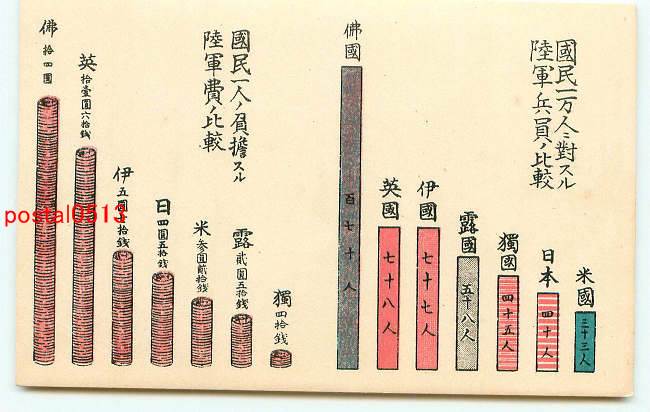 國民一万人ニ對スル
陸軍兵員ノ比較
米國
三十三人
日本
四十人
獨國
四十五人
露國
五十八人
伊國
七十七人
英國
七十八人
佛國
百七十人
國民一人ノ負擔スル
陸軍費ノ比較
獨
四拾錢
露
貳圓五拾錢
米
参圓貳拾錢
日
四圓五拾錢
伊
五圓
拾錢
英
拾壹圓六拾錢
佛
拾四圓
postal0513